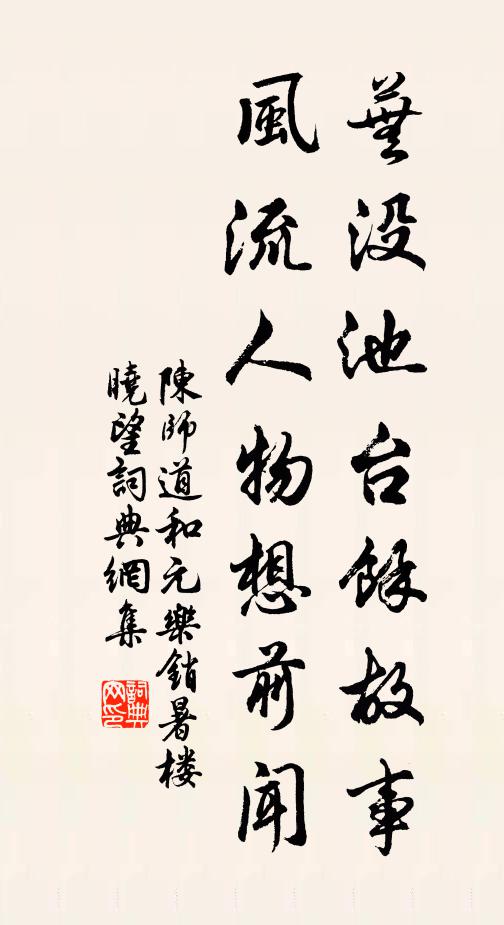 蕪没池台餘故事
風流人物想前聞
陳師道和元樂銷暑楼
曉望詞典網集
詞典网印